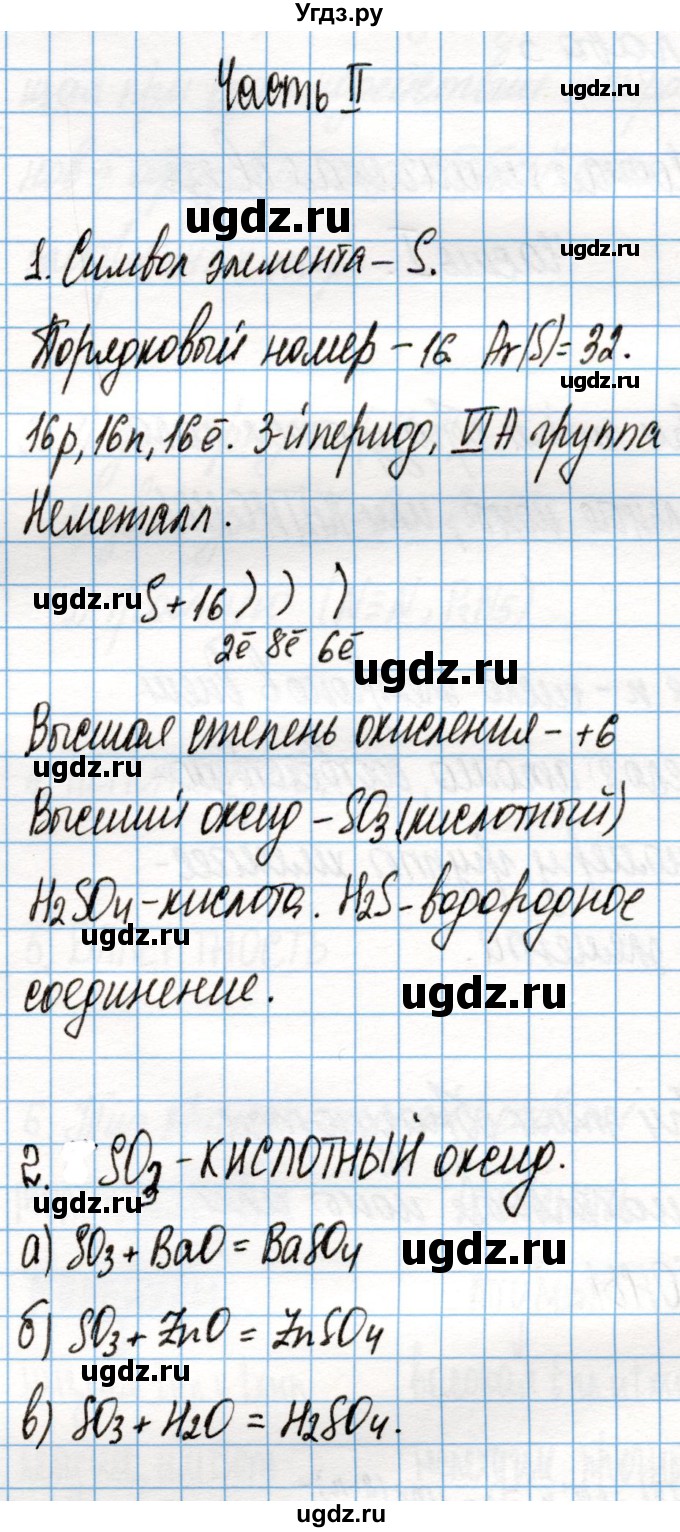 Угдз.ру
Часть II
ugdz.ru
ugdz.ru
ugdz.ru
1. Символ элемента – S.
Порядковый номер – 16 Ar(S) = 32.
ugdz.ru
16p, 16n, 16ē. 3-й период, VI A группа
ugdz.ru
Неметалл.
ugdz.ru
S + 16 ) ) )
2ē 8ē 6ē
ugdz.ru
Высшая степень окисления – +6
ugdz.ru
Высший оксид – SO3 (кислотный)
H2SO4 – кислота. H2S – водородное
ugdz.ru
соединение.
ugdz.ru
2. SO3 – КИСЛОТНЫЙ оксид.
ugdz.ru
а) SO3 + BaO = BaSO4
ugdz.ru
б) SO3 + ZnO = ZnSO4
ugdz.ru
в) SO3 + H2O = H2SO4.
Угдз.ру